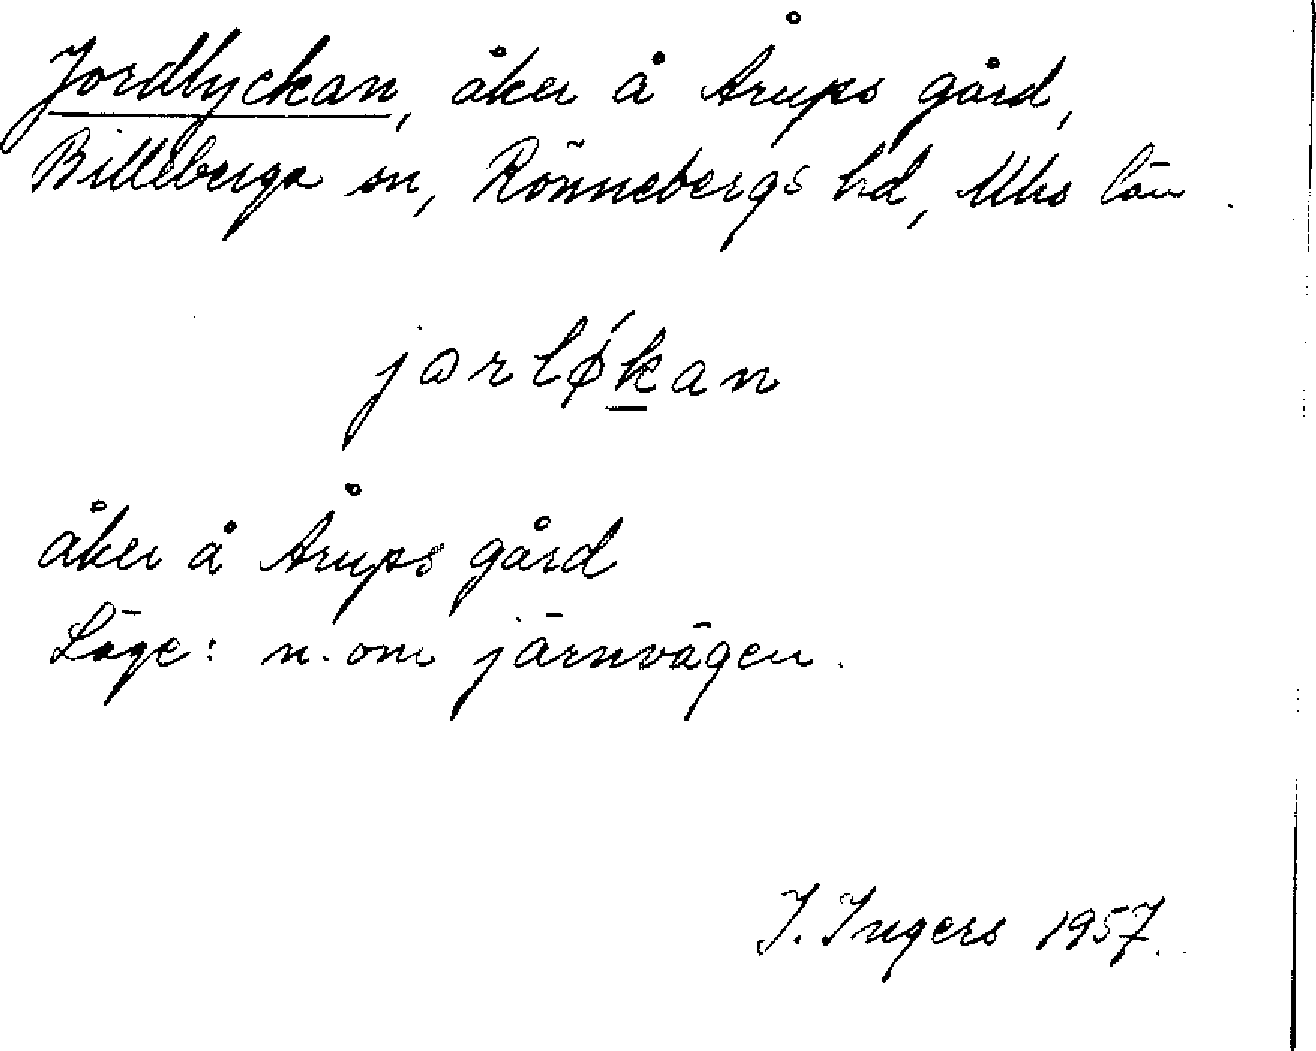 Jordlyckan, åker å Årups gård,
Billeberga sn, Rönnebergs hd, Mhs län.
jɑrlǿkan
åker å Årups gård
Läge: n. om järnvägen.
I. Ingers 1957.